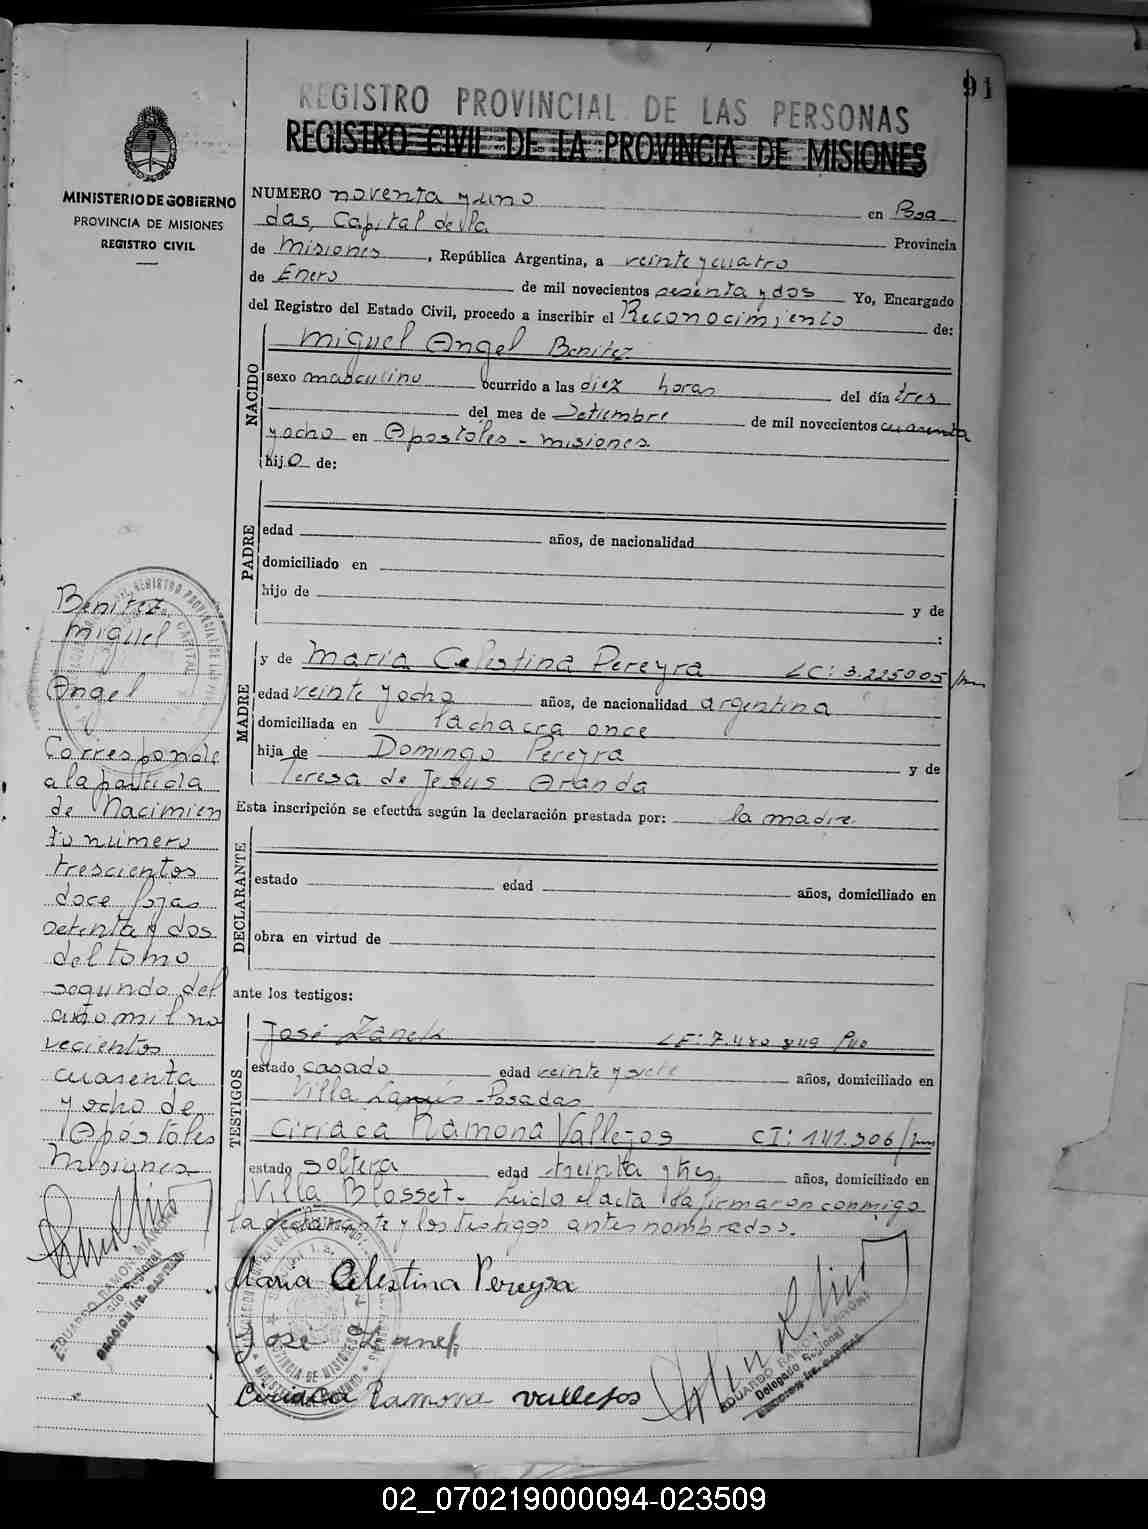 91
REGISTRO PROVINCIAL DE LAS PERSONAS
REGISTRO CIVIL DE LA PROVINCIA DE MISIONES
MINISTERIO DE GOBIERNO
PROVINCIA DE MISIONES
REGISTRO CIVIL
NUMERO noventa y uno en Posa
das, Capital de la Provincia
de Misiones, República Argentina, a veinte y cuatro
de Enero de mil novecientos sesenta y dos Yo, Encargado
del Registro del Estado Civil, procedo a inscribir el Reconocimiento de:
NACIDO
Miguel Angel Benitez
sexo masculino ocurrido a las diez horas del día tres
del mes de Setiembre de mil novecientos cuarenta
y ocho en Apostoles - Misiones
hijo de:
PADRE
edad años, de nacionalidad
domiciliado en
hijo de y de
:
MADRE
y de Maria Celestina Pereyra LC: 3.225005
edad veinte y ocho años, de nacionalidad argentina
domiciliada en la chacra once
hija de Domingo Pereyra y de
Teresa de Jesus Aranda
Esta inscripción se efectúa según la declaración prestada por: la madre
DECLARANTE
estado edad años, domiciliado en
obra en virtud de
ante los testigos:
TESTIGOS
José
estado casado edad veinte y siete años, domiciliado en
Villa Lanús - Posadas
Ciriaca Ramona Vallejos CI: 141.306
estado soltera edad treinta y tres años, domiciliado en
Villa Blosset - Leida el acta la firmaron conmigo
la declarante y los testigos antes nombrados.
Maria Celestina Pereyra
Jose
Ciriaca Ramona vallejos
EDUARDO RAMON
Delegado Regional
Benitez
Miguel
Angel
Corresponde
a la partida
de Nacimien
to numero
trescientos
doce fojas
setenta y dos
del tomo
segundo del
año mil no
vecientos
cuarenta
y ocho de
Apóstoles
Misiones
EDUARDO RAMON
02_070219000094-023509